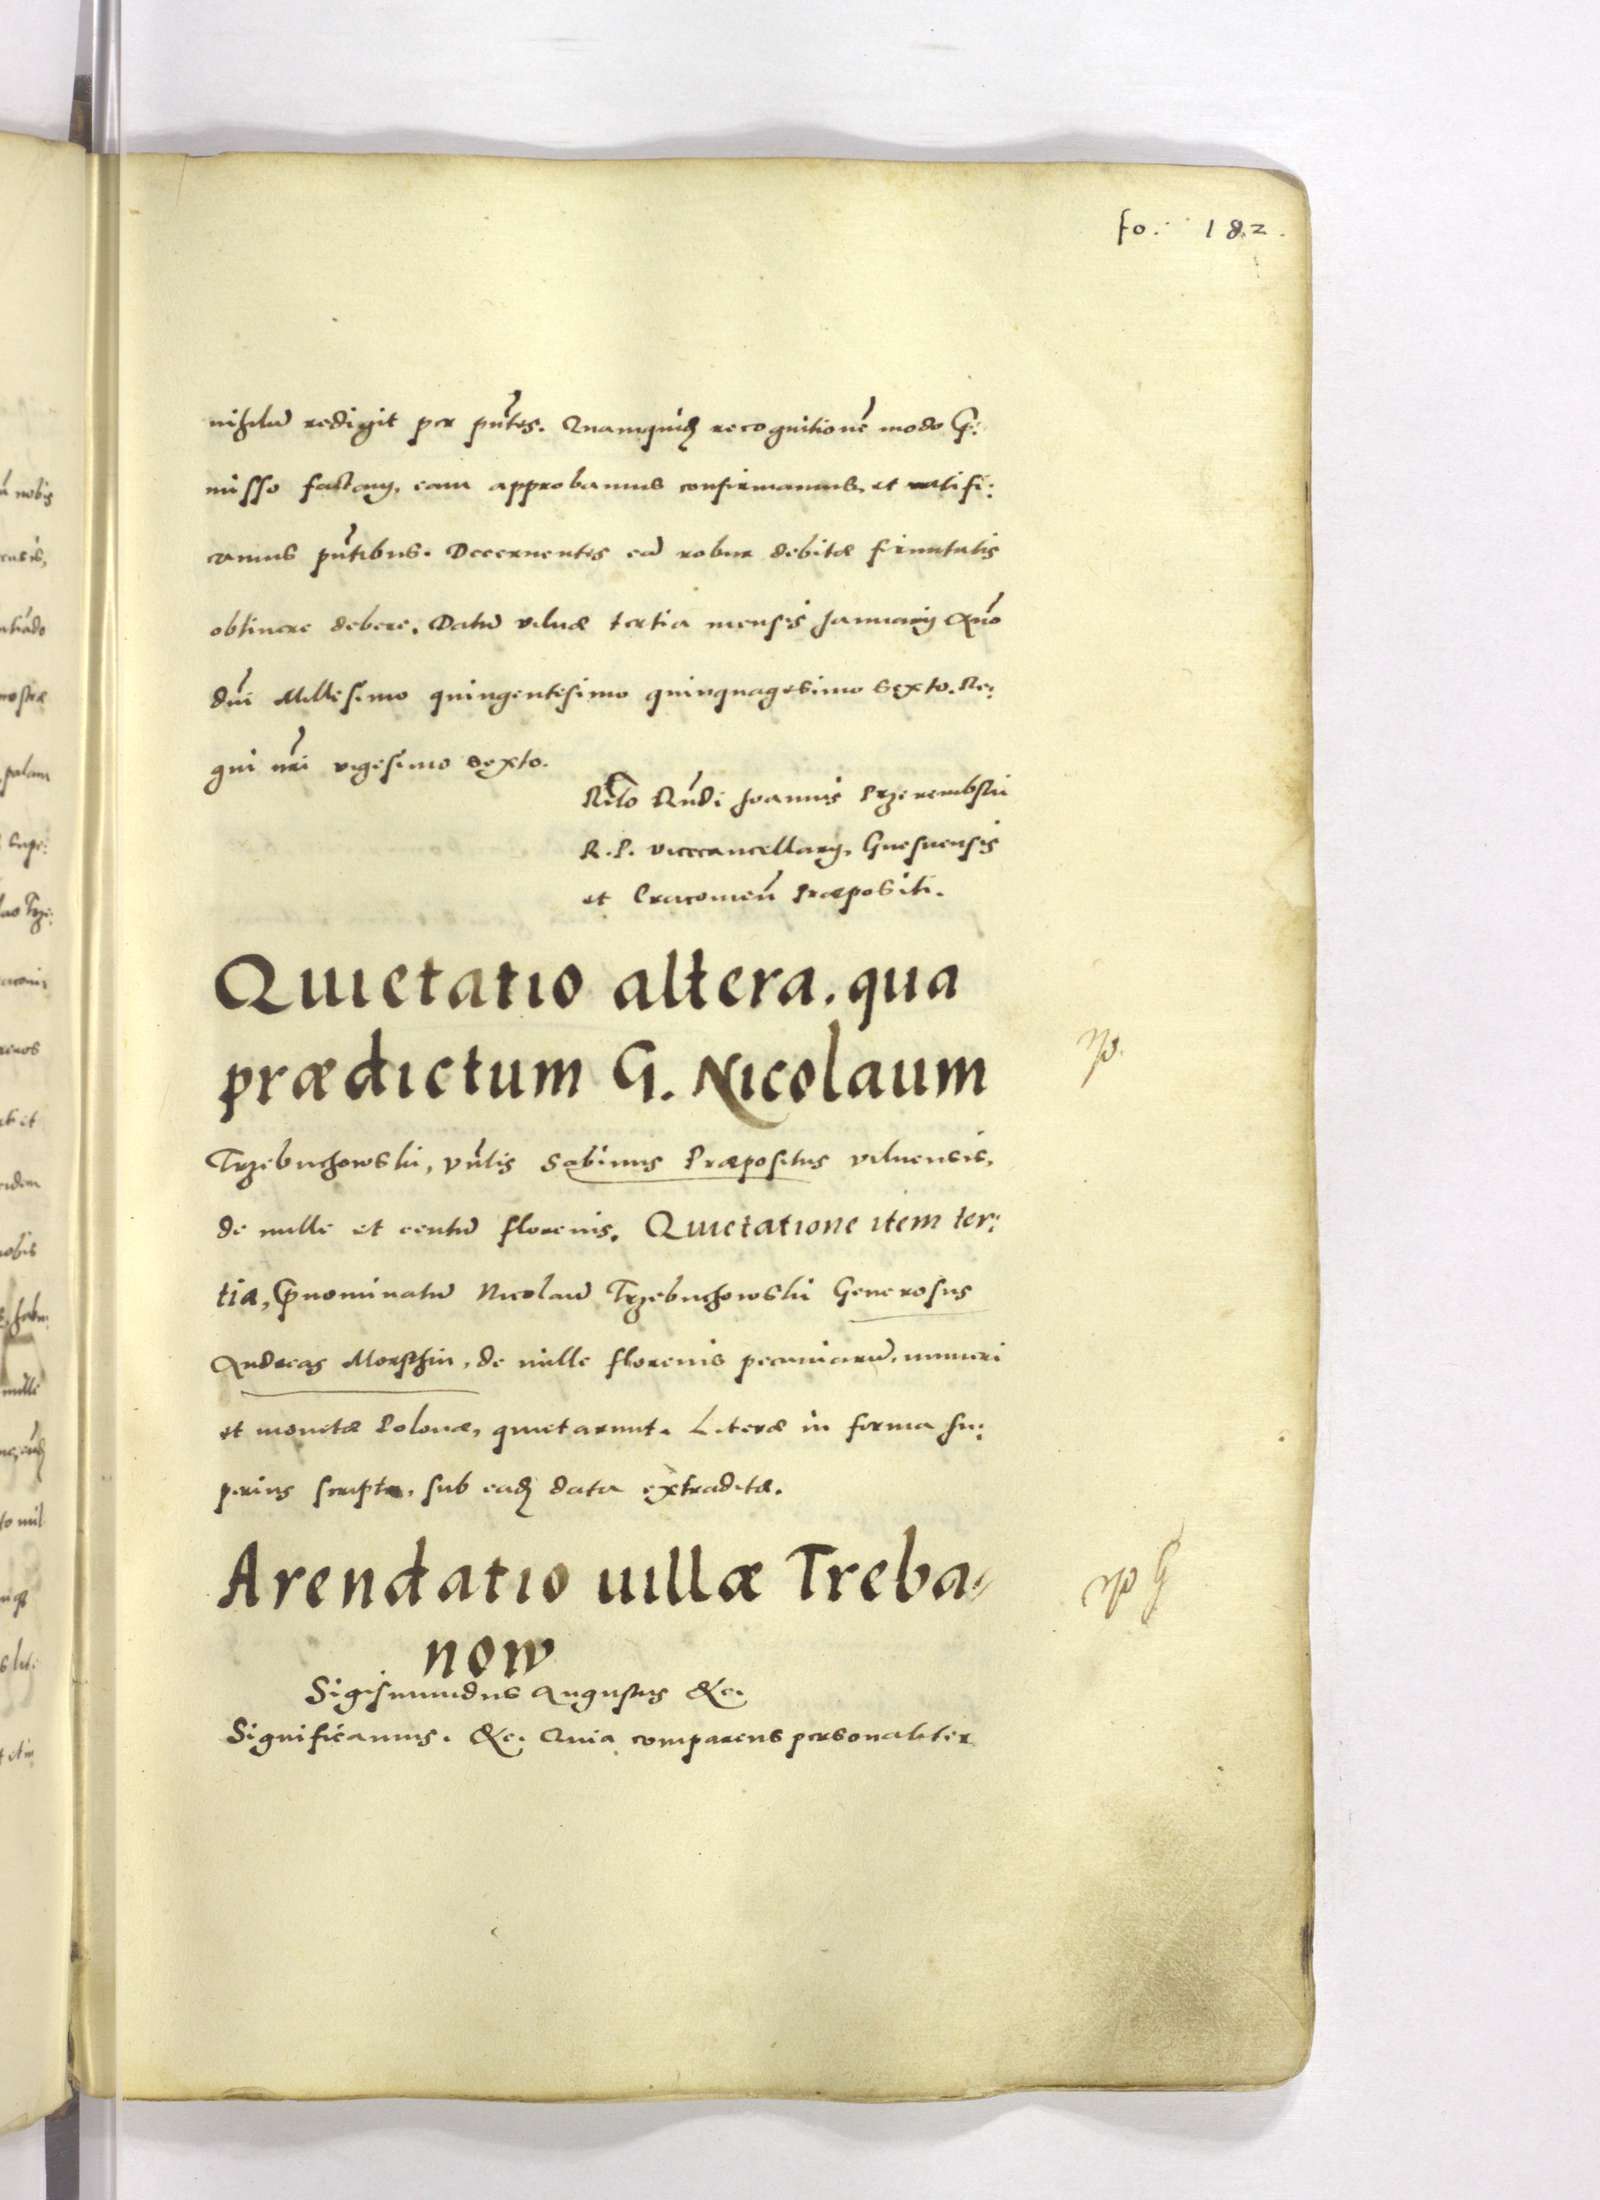 fo. 182.
nihilū redigit per pn̄tes. Quamquidē recognitionē modo p̄:
misso factam, eam approbamus confirmamus, et ratifi:
camus pn̄tibus. Decernentes eā robur debitæ firmitatis
obtinere debere. Datū Vilnæ tertia mensis Januarij Año
dn̄i Millesimo quingentesimo quinquagesimo sexto. Re:
gni nr̄i vigesimo sexto.
Relo Rn̄di Joannis Przerembskii
R. P. Vicecancellarij, Gnesnensis
et Cracovien̄ Præpositi.
Quietatio altera, qua
prædictum G. Nicolaum
Trzebuchowski, Vn̄lis Sabinus Præpositus Vilnensis,
de mille et centū florenis. Quietatione item ter:
tia, p̄nominatū Nicolaū Trzebuchowski Generosus
Andreas Morsthin, de mille florenis pecuniarū, numeri
et monetæ Polonæ, quietarunt. Literæ in forma su:
perius scripta, sub eadē data extraditæ.
Arendatio uillæ Treba
now
Sigismundus Augustus &c.
Significamus. &c. Quia comparens personaliter